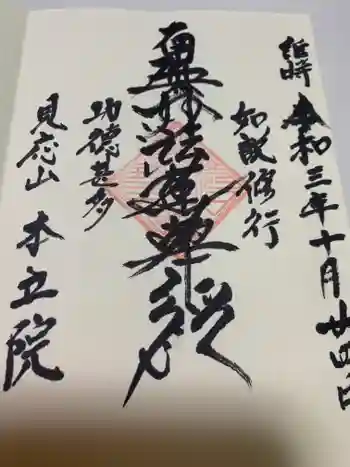 維時 令和三年十月廿四日
如説修行
南無妙法蓮華経
功徳甚多
見応山 本立院